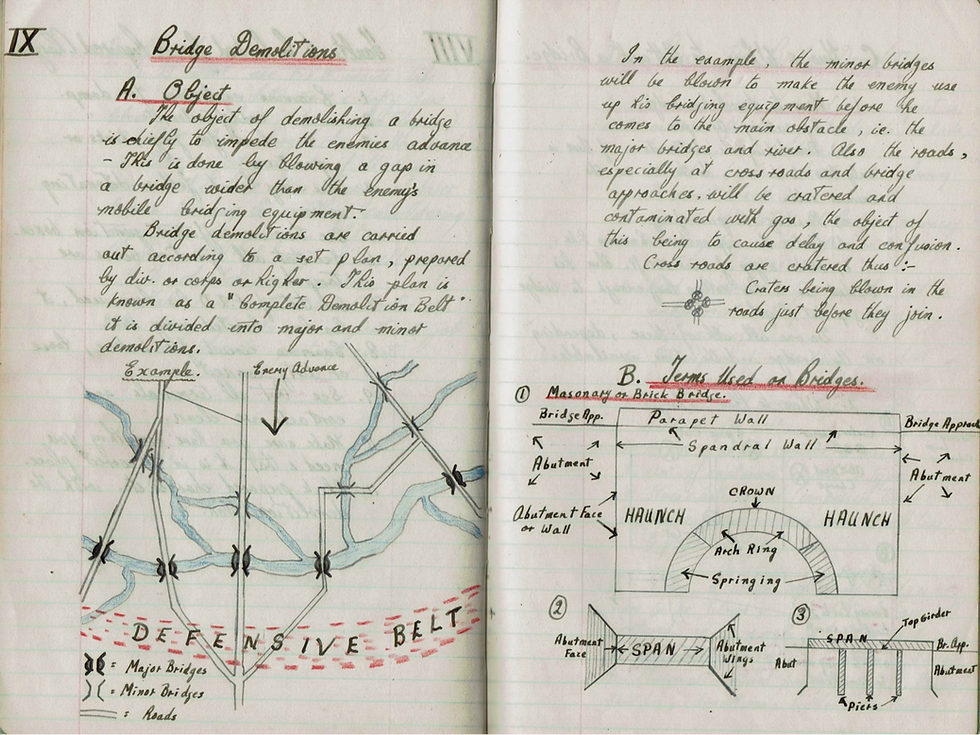 IX
Bridge Demolitions
A. Object
The object of demolishing a bridge
is chiefly to impede the enemies advance
- This is done by blowing a gap in
a bridge wider than the enemy's
mobile bridging equipment.
Bridge demolitions are carried
out according to a set plan, prepared
by div. or corps or higher. This plan is
known as a "Complete Demolition Belt"
it is divided into major and minor
demolitions.
Example.
Enemy Advance
DEFENSIVE BELT
= Major Bridges
= Minor Bridges
= Roads
In the example, the minor bridges
will be blown to make the enemy use
up his bridging equipment before he
comes to the main obstacle, ie. the
major bridges and river. Also the roads,
especially at cross roads and bridge
approaches, will be cratered and
contaminated with gas, the object of
this being to cause delay and confusion.
Cross roads are cratered thus :-
Craters being blown in the
roads just before they join.
B. Terms Used on Bridges.
① Masonary or Brick Bridge.
Bridge App.
Parapet Wall
Bridge Approach
Spandral Wall
Abutment
Abutment
Abutment Face
or Wall
CROWN
HAUNCH
HAUNCH
Arch Ring
Springing
②
Abutment
Face
SPAN
Abutment
Wings
③
SPAN
Top Girder
Br. App.
Abut
Abutment
Piers